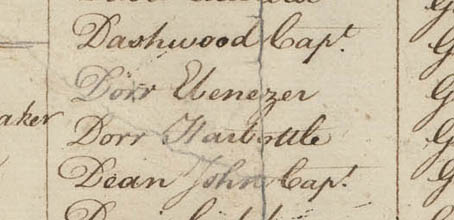 Dashwood Capt.
Dorr Ebenezer
aker Dorr Harbottle
Dean John Capt.